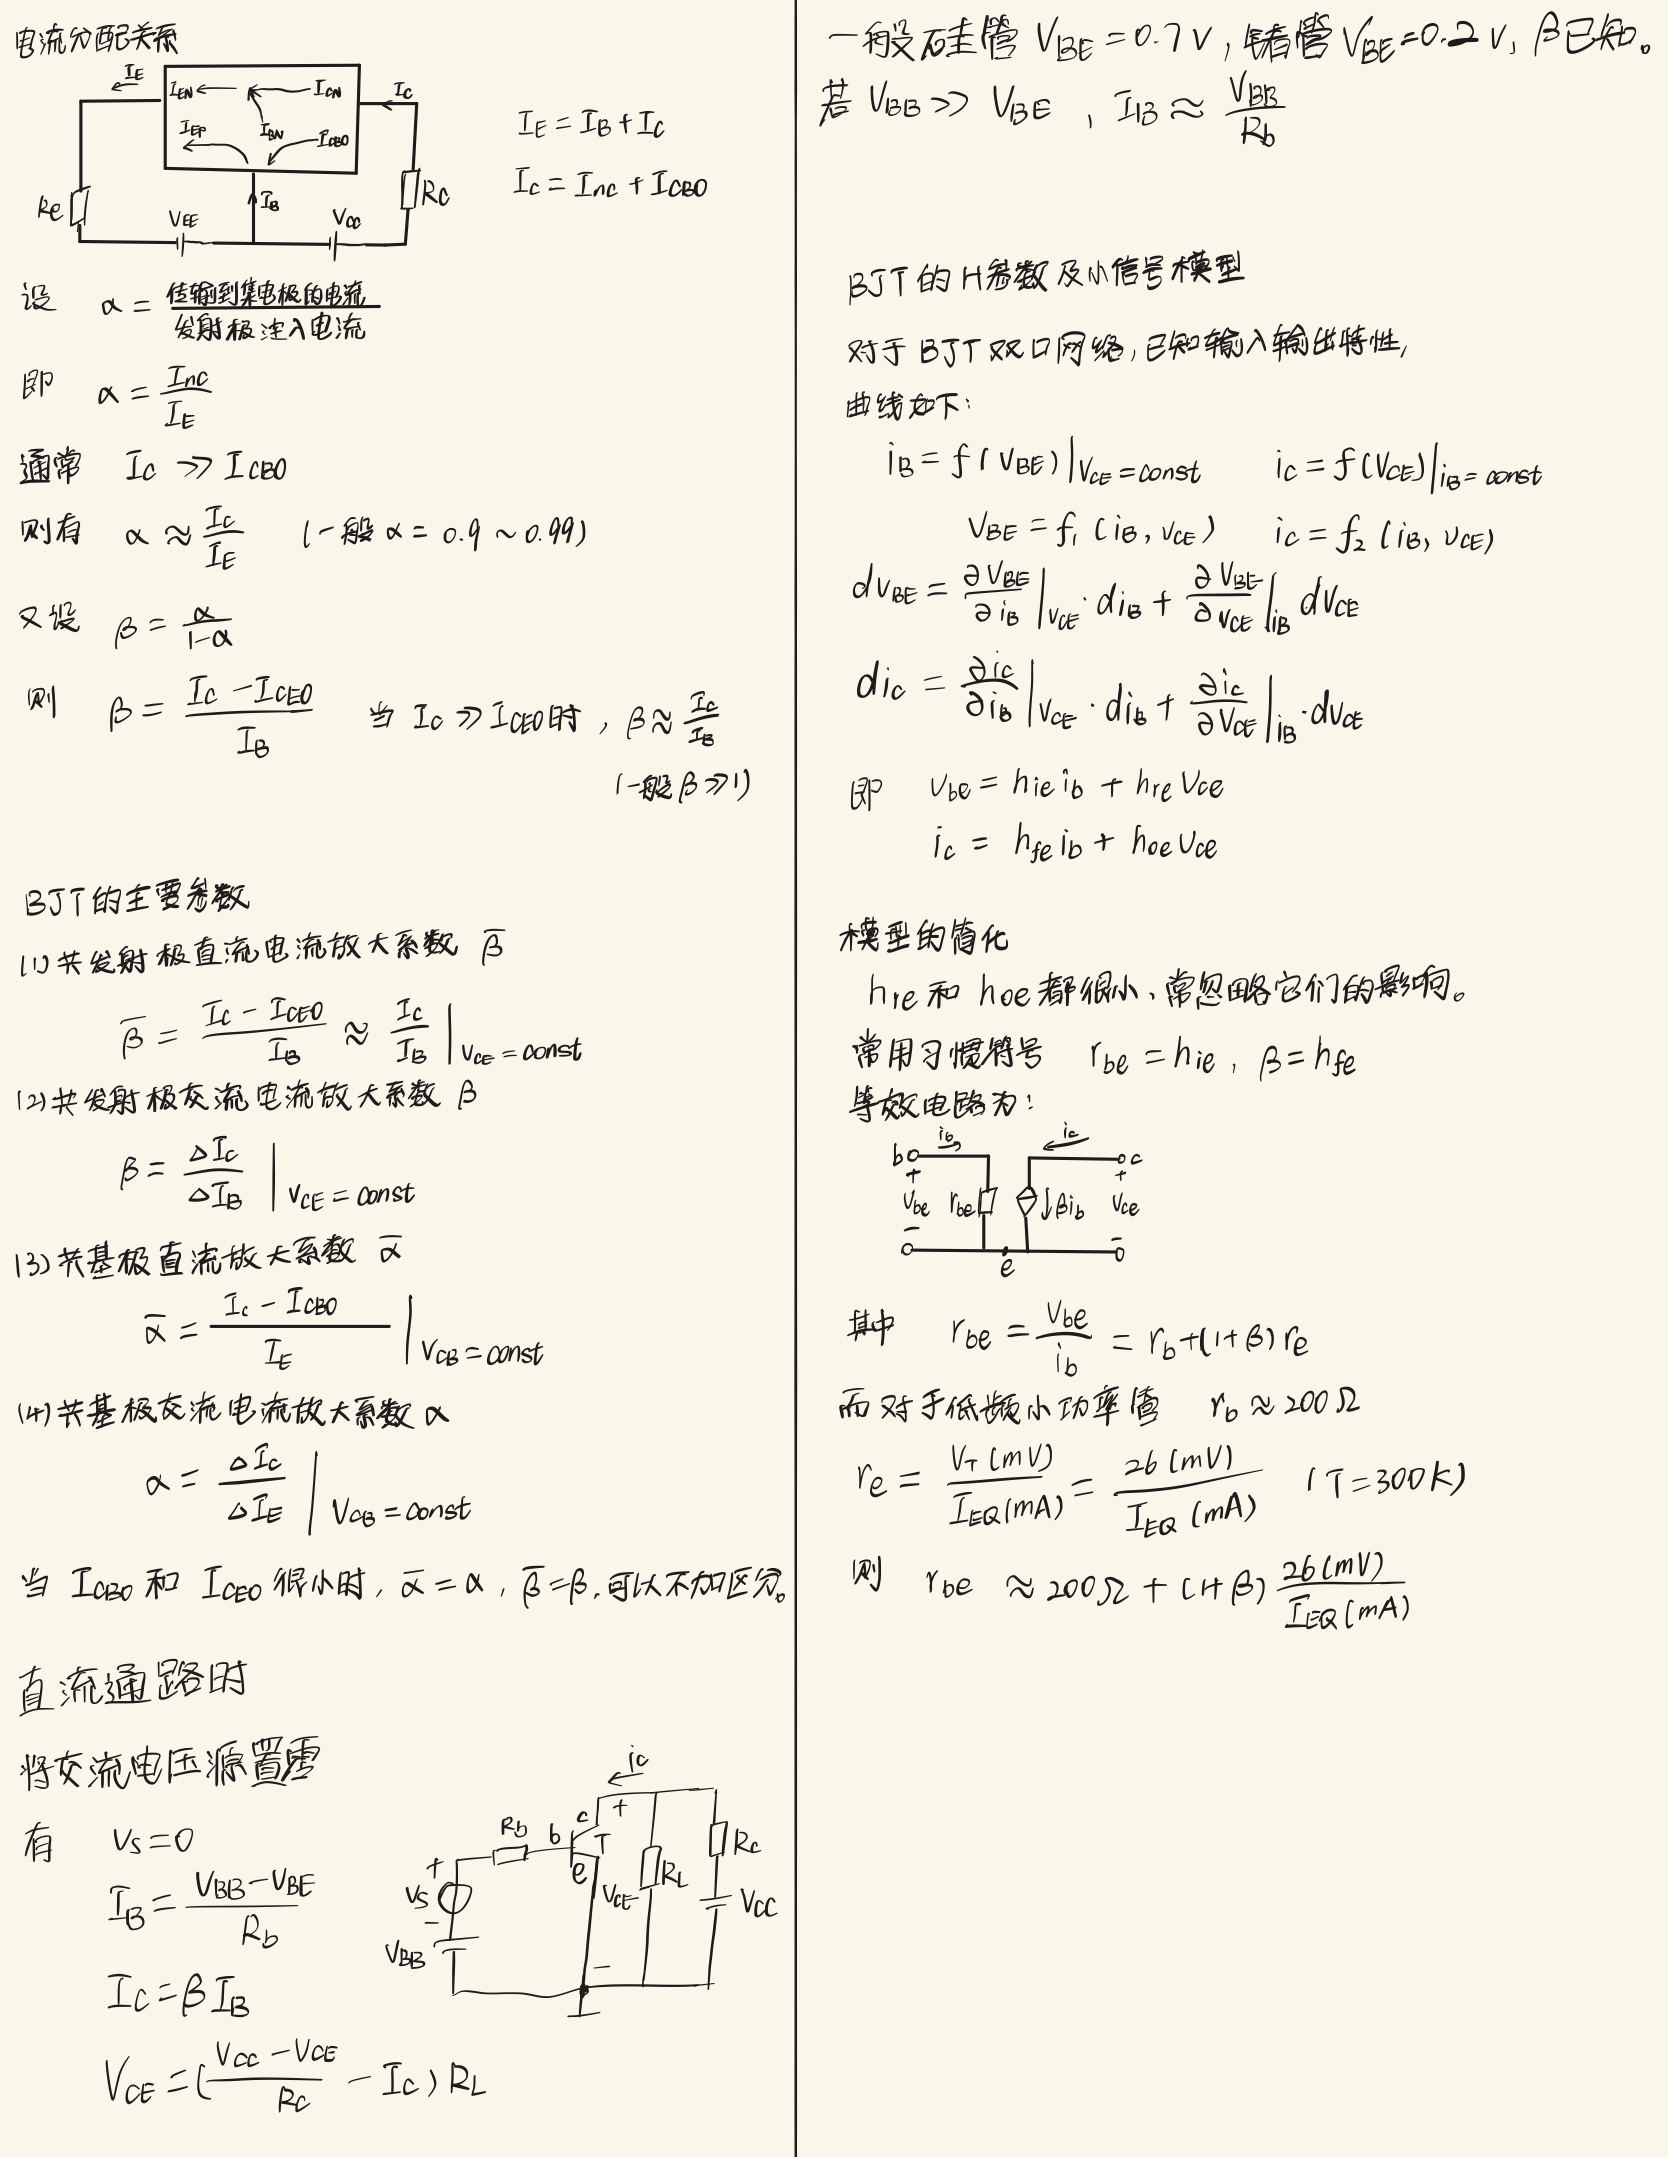 电流分配关系
I_E
I_EN
I_CN
I_C
I_EP
I_BN
I_CBO
I_B
Re
Rc
V_EE
V_CC
I_E = I_B + I_C
I_C = I_nc + I_CBO
设 α = 传输到集电极的电流 / 发射极注入电流
即 α = I_nc / I_E
通常 I_C >> I_CBO
则有 α ≈ I_C / I_E (一般 α = 0.9 ~ 0.99)
又设 β = α / 1-α
则 β = I_C - I_CEO / I_B 当 I_C >> I_CEO时, β ≈ I_C / I_B
(一般 β >> 1)
BJT的主要参数
(1) 共发射极直流电流放大系数 β̅
β̅ = I_C - I_CEO / I_B ≈ I_C / I_B | V_CE = const
(2) 共发射极交流电流放大系数 β
β = ΔI_C / ΔI_B | V_CE = const
(3) 共基极直流放大系数 α̅
α̅ = I_C - I_CBO / I_E | V_CB = const
(4) 共基极交流电流放大系数 α
α = ΔI_C / ΔI_E | V_CB = const
当 I_CBO 和 I_CEO 很小时, α̅ = α, β̅ = β, 可以不加区分。
直流通路时
将交流电压源置零
有 V_S = 0
I_B = V_BB - V_BE / R_b
I_C = β I_B
V_CE = ( V_CC - V_CE / R_C - I_C ) R_L
i_c
+
c
Rb
b
T
e
+
V_S
-
V_BB
V_CE
R_L
Rc
V_CC
-
一般硅管 V_BE = 0.7 V, 锗管 V_BE = 0.2 V, β已知。
若 V_BB >> V_BE , I_B ≈ V_BB / R_b
BJT 的 H参数及小信号模型
对于 BJT 双口网络, 已知输入输出特性,
曲线如下:
i_B = f(V_BE) | V_CE = const i_C = f(V_CE) | i_B = const
V_BE = f_1 (i_B, v_CE) i_C = f_2 (i_B, v_CE)
dv_BE = ∂V_BE / ∂i_B | V_CE · di_B + ∂V_BE / ∂V_CE | i_B dV_CE
di_C = ∂i_C / ∂i_B | V_CE · di_B + ∂i_C / ∂V_CE | i_B · dv_CE
即 v_be = h_ie i_b + h_re v_ce
i_c = h_fe i_b + h_oe v_ce
模型的简化
h_re 和 h_oe 都很小、常忽略它们的影响。
常用习惯符号 r_be = h_ie , β = h_fe
等效电路为:
b
i_b
i_c
c
+
V_be
r_be
βi_b
+
V_ce
-
-
e
其中 r_be = V_be / i_b = r_b + (1+β) r_e
而对于低频小功率管 r_b ≈ 200 Ω
r_e = V_T (mV) / I_EQ (mA) = 26 (mV) / I_EQ (mA) (T = 300 K)
则 r_be ≈ 200 Ω + (1+β) 26 (mV) / I_EQ (mA)